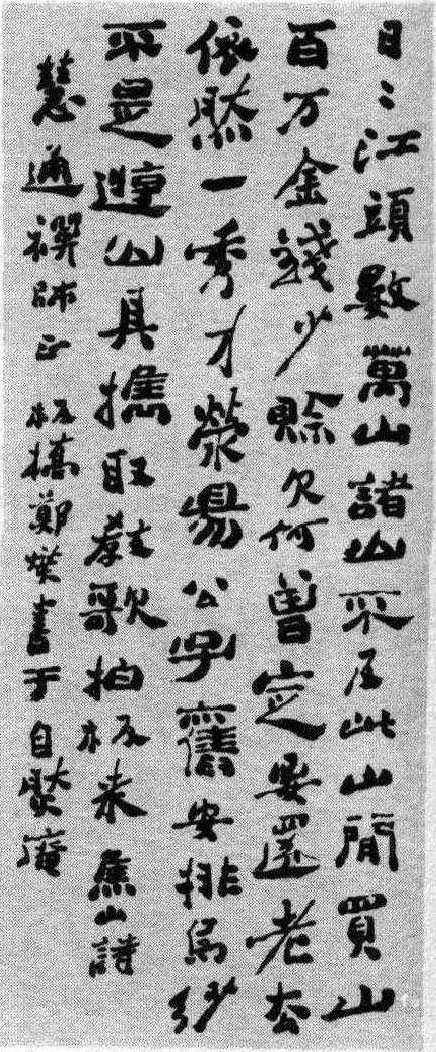 日々江頭數萬山諸山不及此山閒買山
百万金錢少賒欠何曾定要還老去
依然一秀才滎昜公子舊安排烏紗
不是遊山具攜取教歌拍板来焦山詩
慧通禪師正板橋鄭燮書于自然庵